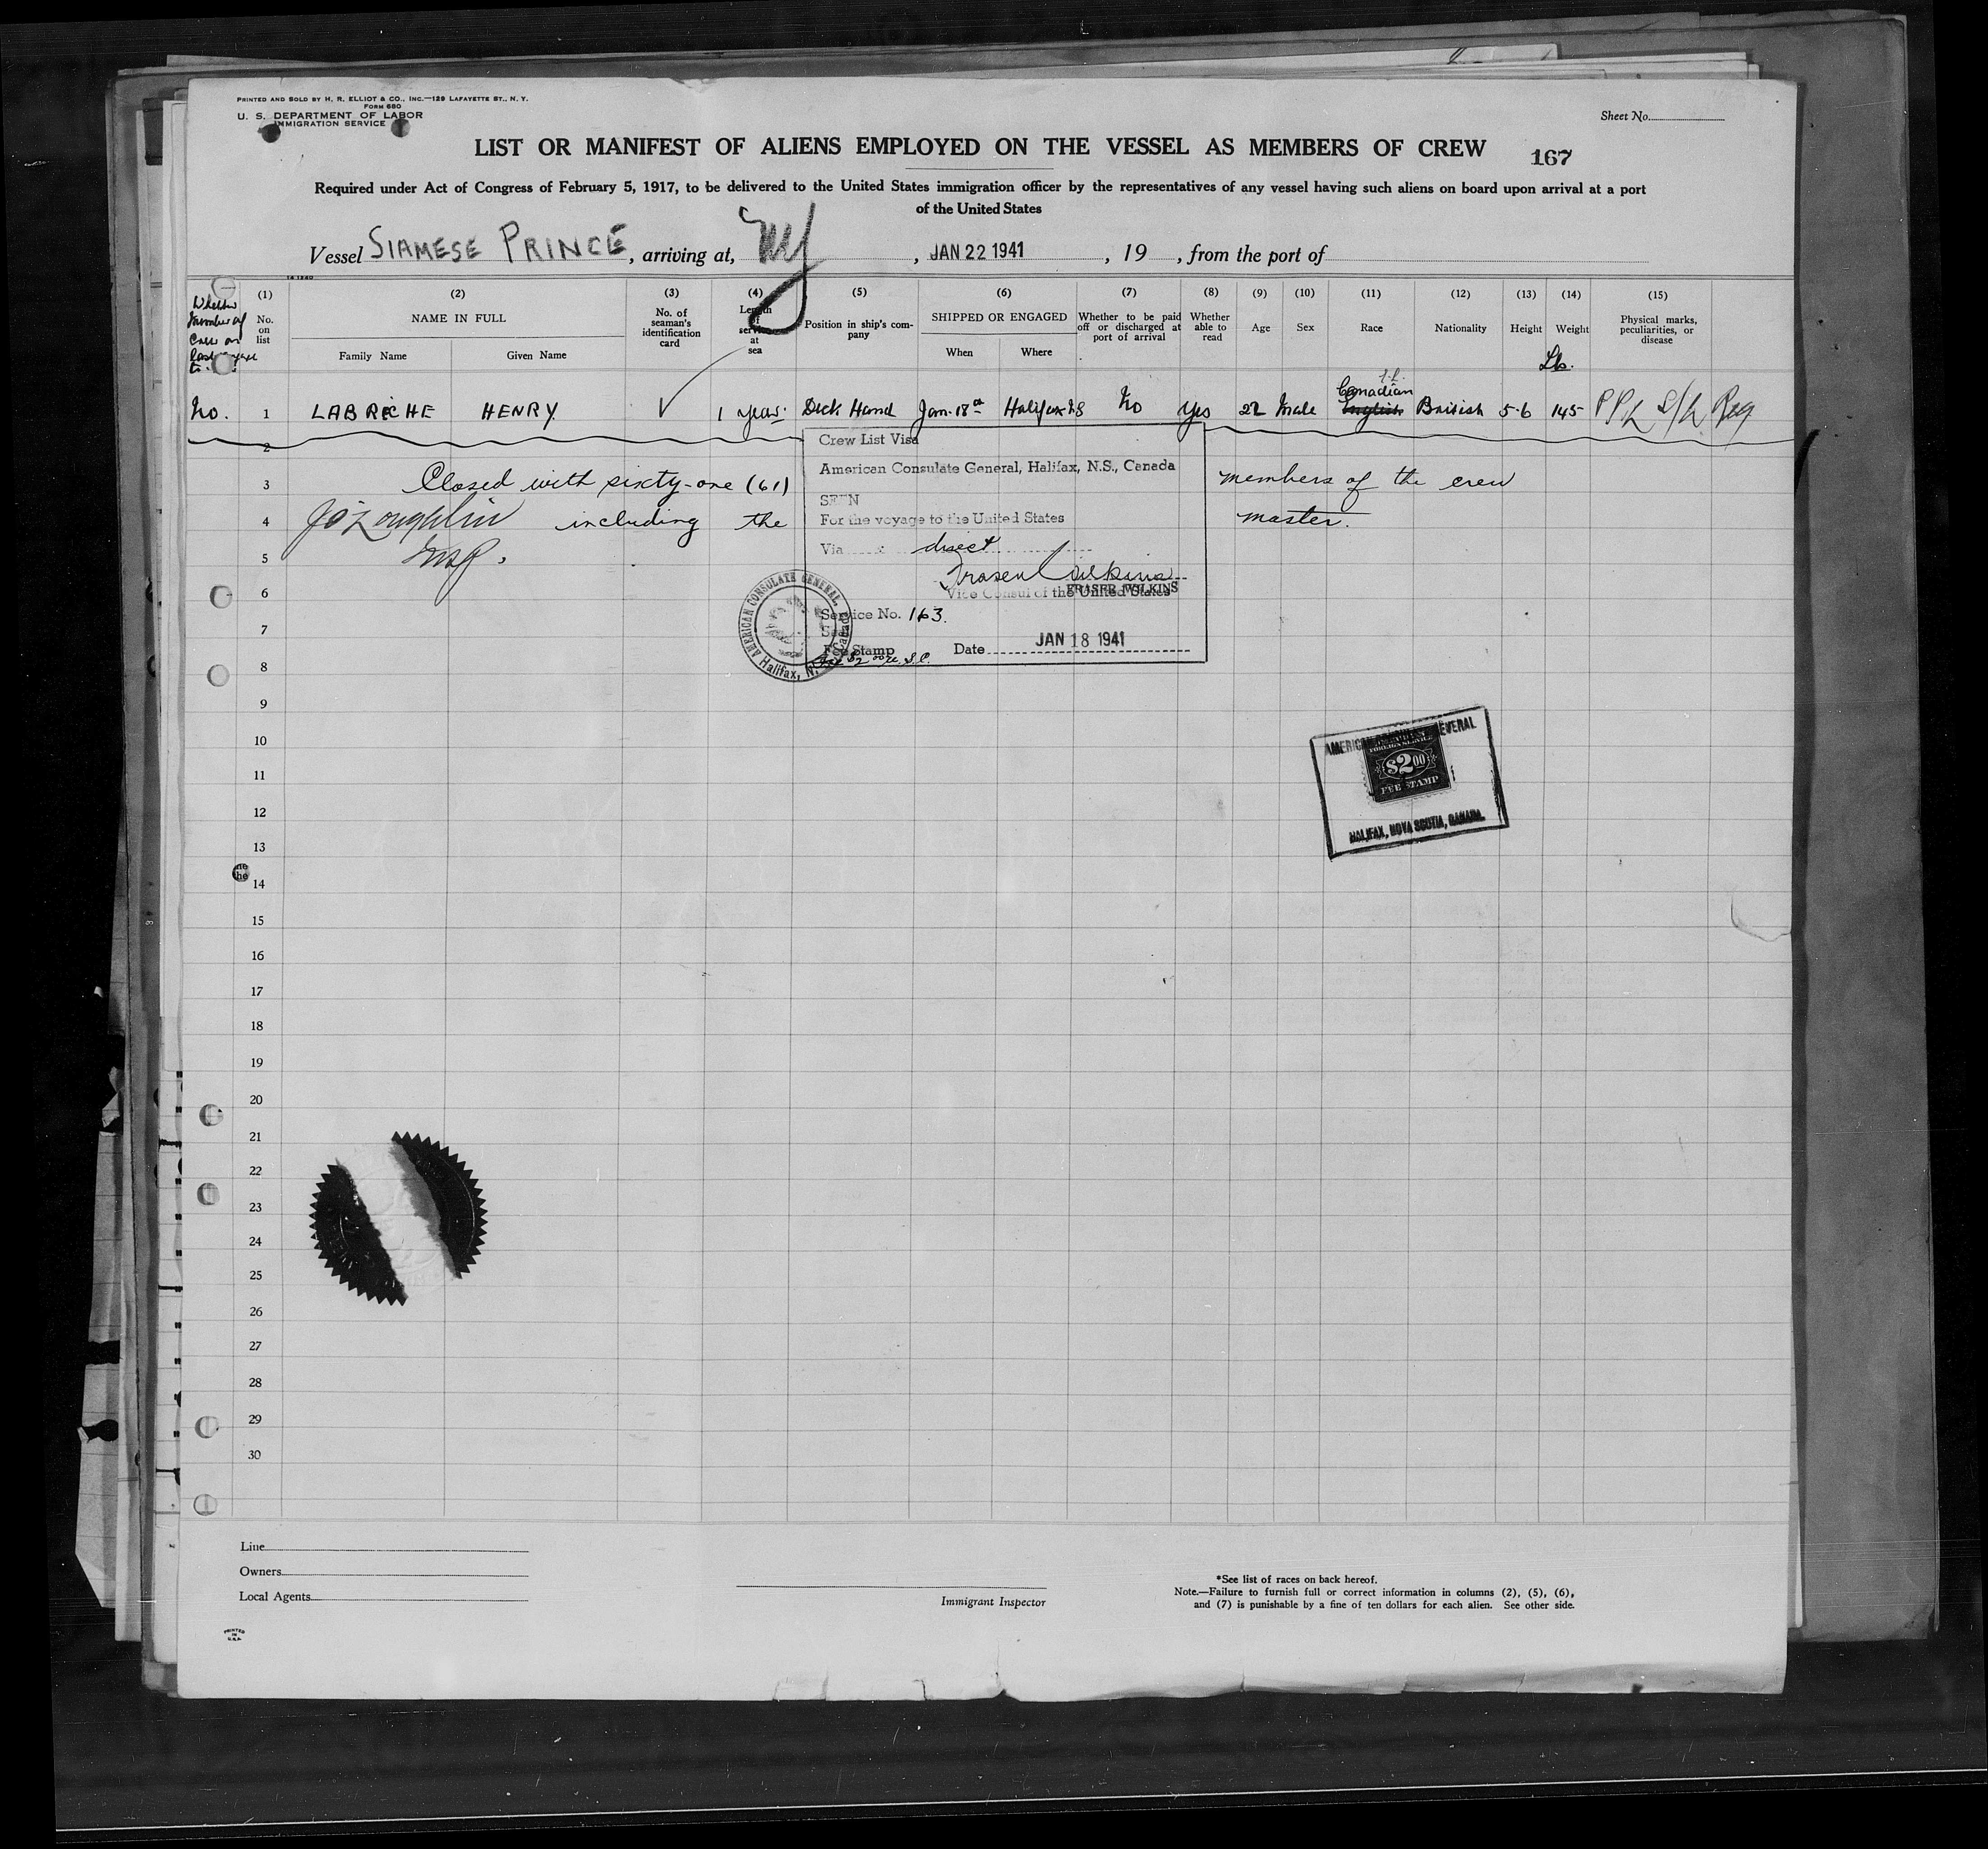 PRINTED AND SOLD BY H. R. ELLIOT & CO., INC.—129 LAFAYETTE ST., N. Y.
FORM 680
U. S. DEPARTMENT OF LABOR
IMMIGRATION SERVICE
Sheet No.
LIST OR MANIFEST OF ALIENS EMPLOYED ON THE VESSEL AS MEMBERS OF CREW 167
Required under Act of Congress of February 5, 1917, to be delivered to the United States immigration officer by the representatives of any vessel having such aliens on board upon arrival at a port
of the United States
Vessel SIAMESE PRINCE, arriving at, NY, JAN 22 1941, 19 , from the port of
Whether member of Crew on last voyage to
(1) (2) (3) (4) (5) (6) (7) (8) (9) (10) (11) (12) (13) (14) (15)
No. on list
NAME IN FULL
Family Name Given Name
No. of seaman's identification card
Length of service at sea
Position in ship's company
SHIPPED OR ENGAGED
When Where
Whether to be paid off or discharged at port of arrival
Whether able to read
Age Sex Race Nationality Height Weight
Lb.
Physical marks, peculiarities, or disease
Canadian
No. 1 LABRECHE HENRY √ 1 year Deck Hand Jan. 18th Halifax NS No Yes 22 Male English British 5-6 145 PPL S/L Reg
2
3 Closed with sixty-one (61) members of the crew
4 J O'Loughlin including the master.
5 Insp.
Crew List Visa
American Consulate General, Halifax, N.S., Canada
SEEN
For the voyage to the United States
Via direct
Fraser Wilkins
FRASER WILKINS
Vice Consul of the United States
Service No. 163.
Seal
Fee Stamp
Date JAN 18 1941
AMERICAN CONSULATE GENERAL, Halifax, N.S. Canada
6
7
8
9
10
AMERICAN CONSULATE GENERAL
FOREIGN SERVICE
$2.00
FEE STAMP
HALIFAX, NOVA SCOTIA, CANADA.
11
12
13
14
15
16
17
18
19
20
21
22
23
24
25
26
27
28
29
30
Line
Owners
Local Agents
Immigrant Inspector
*See list of races on back hereof.
Note.—Failure to furnish full or correct information in columns (2), (5), (6),
and (7) is punishable by a fine of ten dollars for each alien. See other side.
PRINTED
IN
U.S.A.